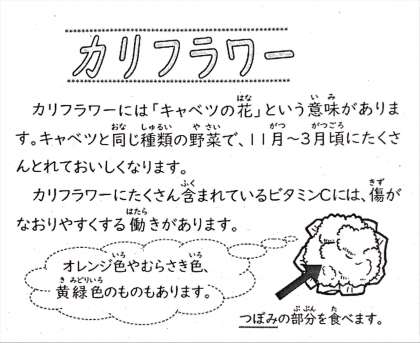 カリフラワー
カリフラワーには「キャベツの花」という意味がありま
す。キャベツと同じ種類の野菜で、11月~3月頃にたくさ
んとれておいしくなります。
カリフラワーにたくさん含まれているビタミンCには、傷が
なおりやすくする働きがあります。
オレンジ色やむらさき色、
黄緑色のものもあります。
つぼみの部分を食べます。